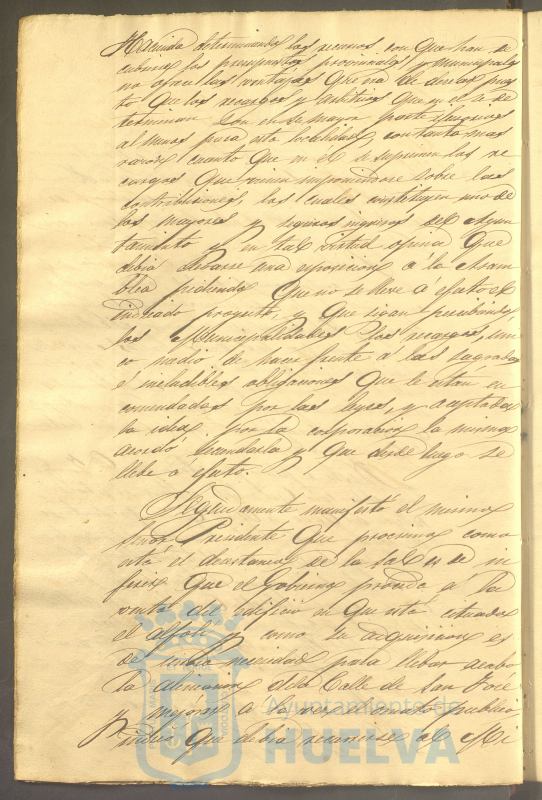 Hacienda determinando los recursos con que han de
cubrirse los presupuestos provinciales y municipales
no ofrece las ventajas que era de desear pues
to que los recargos y arbitrios que en el se de
terminan son en su mayor parte ilusorios
al menos para esta localidad, con tanta mas
razon cuanto que en el se suprimen los re
cargos que vienen imponiendose sobre las
contribuciones, los cuales constituyen uno de
los mayores y seguros ingresos del Ayun
tamiento y en tal virtud opina que
debia elevarse una esposicion á la Asam
blea pidiendo que no se lleve a efecto el
indicado proyecto, y que sigan percibiendo
las Municipalidades los recargos, uni
co medio de hacer frente á las sagradas
é ineludibles obligaciones que le están en
comendadas por las leyes, y aceptada
la idea por la corporacion la misma
acordó secundarla y que desde luego se
lleve a efecto.
Seguidamente manifestó el mismo
Señor Presidente que procsimo como
está el desestanco de la sal es de in
ferir que el Gobierno proceda á la
venta del edificio en que esta situado
el alfolí y como su adquisicion es
de suma necesidad para llebar acabo
la alineacion de la Calle de San José
y mejorar a la vez ornato publico
indicó que debia recurrirse al Mi
Ayuntamiento de
HUELVA